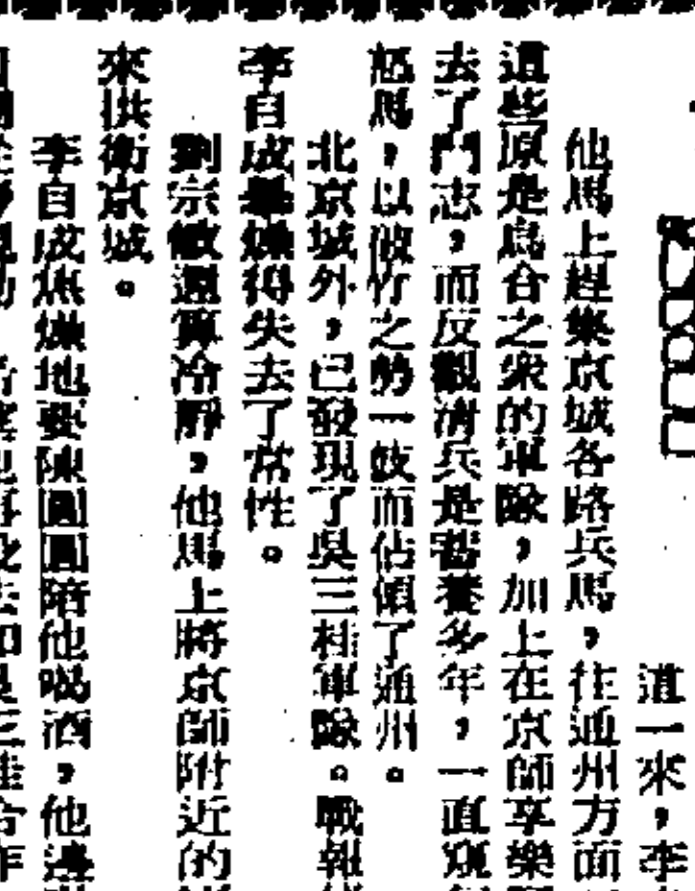 道一來，李
他馬上趕集京城各路兵馬，往通州方面
這些原是烏合之衆的軍隊，加上在京師享樂
去了鬥志，而反觀清兵是蓄養多年，一直窺
怒馬，以破竹之勢一鼓而佔領了通州。
北京城外，已發現了吳三桂軍隊。戰報
李自成暴燥得失去了常性。
劉宗敏還算冷靜，他馬上將京師附近的
來拱衛京城。
李自成焦燥地要陳圓圓陪他喝酒，他邊